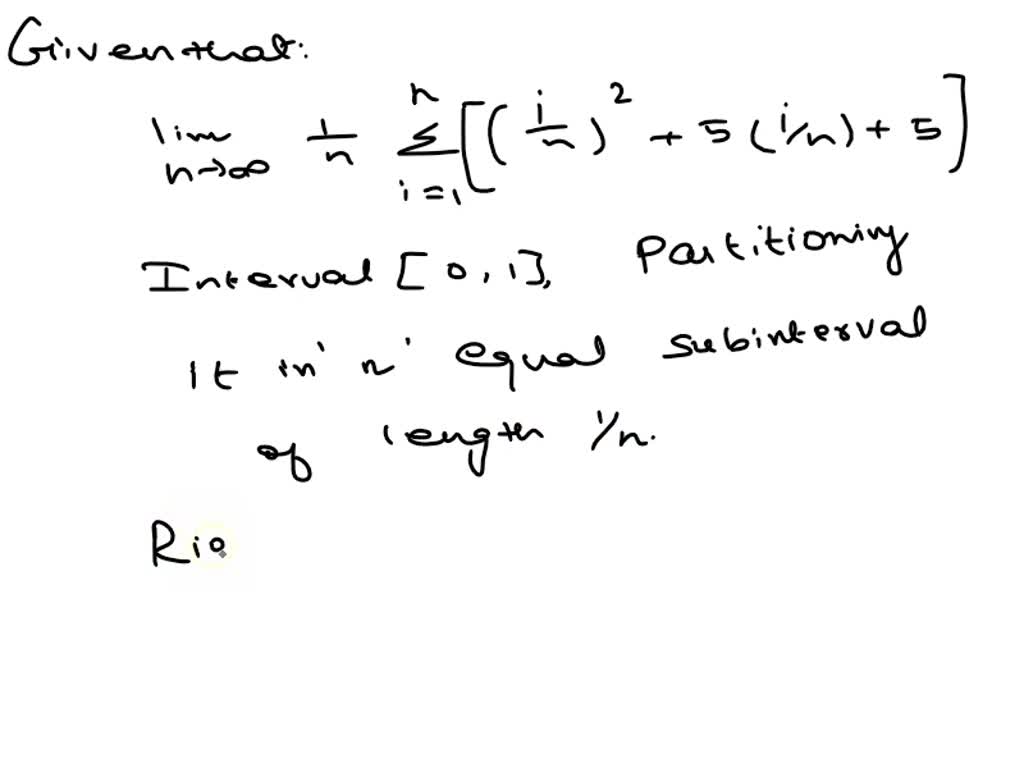 Given that:
lim n→∞ 1/n Σ i=1 n [(i/n)² + 5(i/n) + 5]
Interval [0,1], Partitioning
It in 'n' equal subinterval
of length 1/n.
Rie